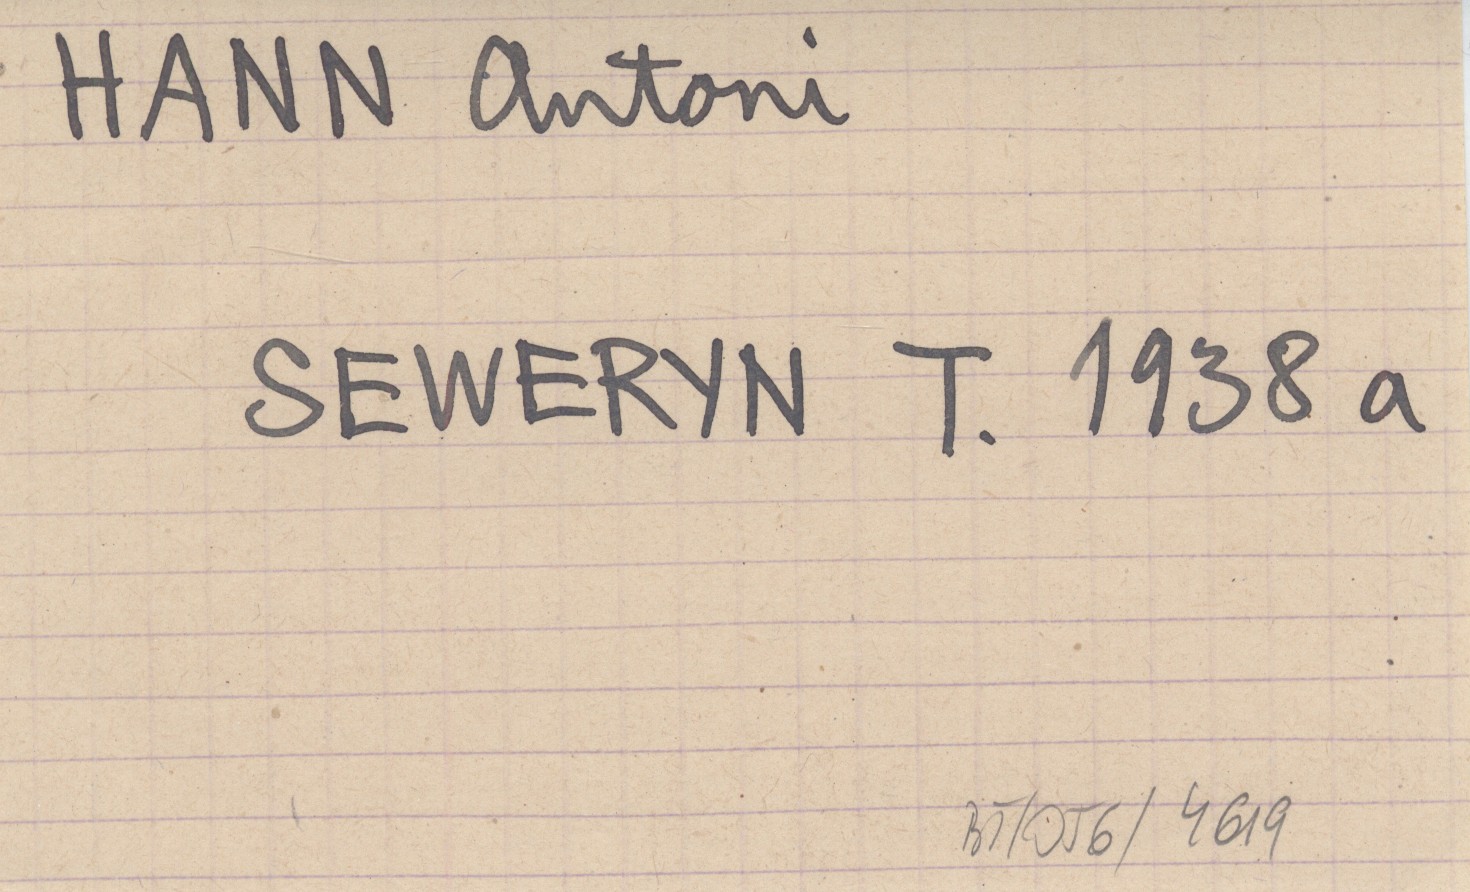 HANN Antoni
SEWERYN T. 1938 a
4619